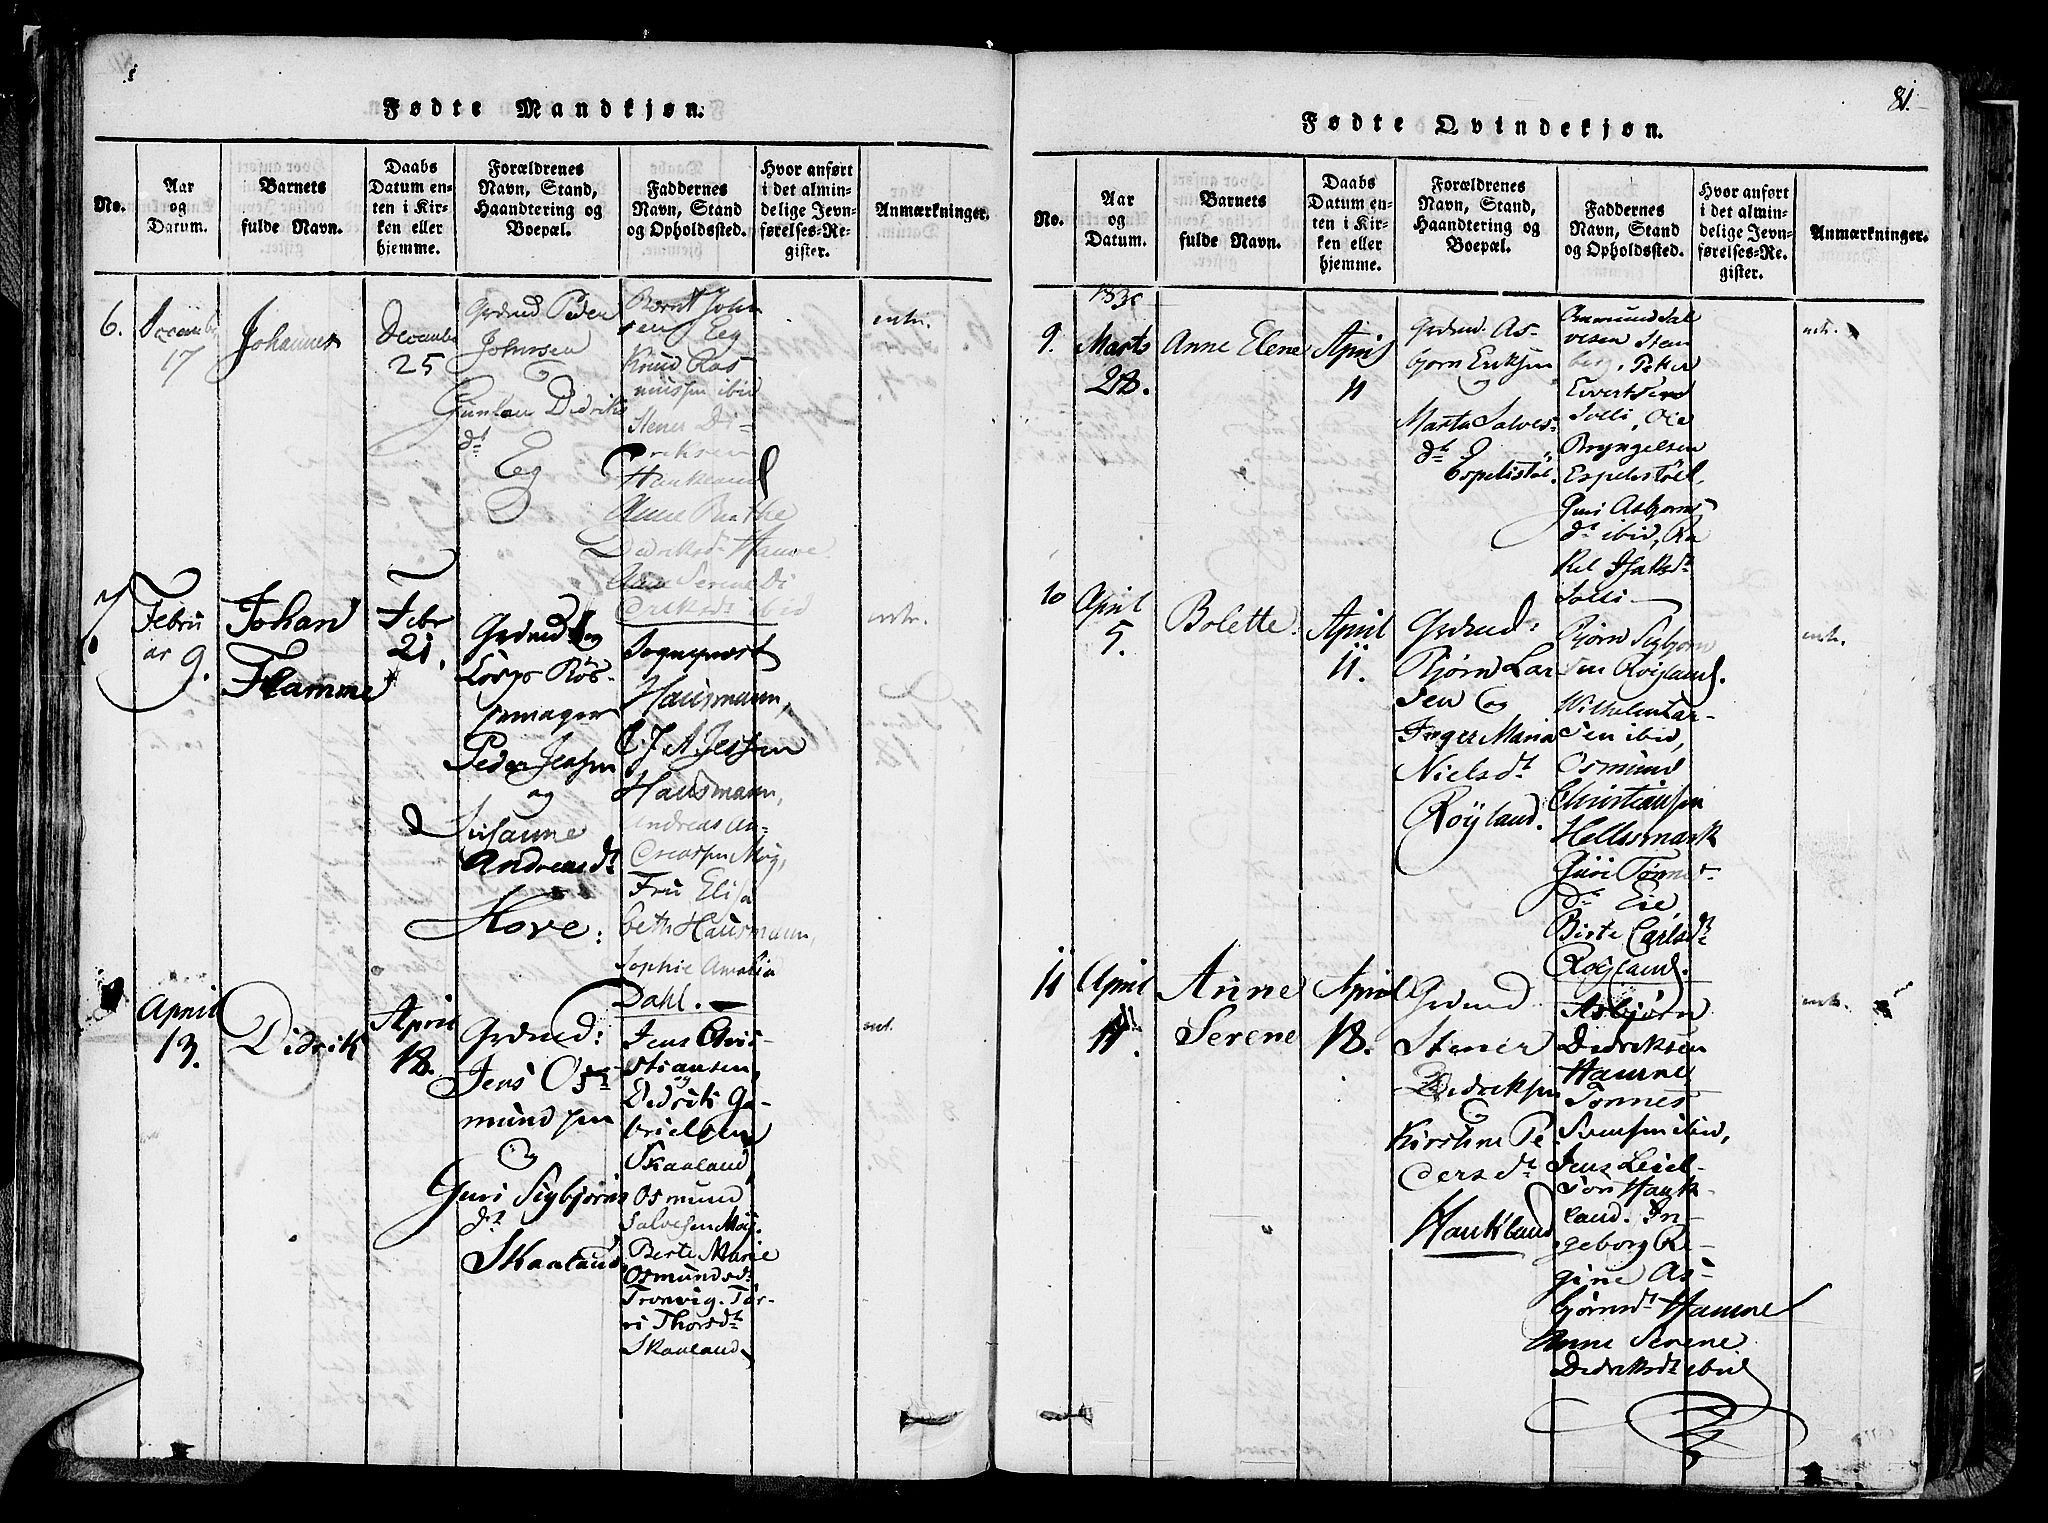 Fødte Mandkjøn.
No.
Aar
og
Datum.
Barnets
fulde Navn.
Daabs
Datum en-
ten i Kir-
ken eller
hjemme.
Forældrenes
Navn, Stand,
Haandtering og
Boepæl.
Faddernes
Navn, Stand
og Opholdssted.
Hvor anført
i det almin-
delige Jevn-
førelses-Re-
gister.
Anmærkninger.
6.
Decembr
17
Johannes
December
25
Grdmd Peder
Johnsen
Gunlau Didriks
dt
Eeg
Bernt John
sen Eeg
Knud Ras
mussen ibid
Stener Di-
driksen
Haukland
Anne Birthe
Didriksdt Haune
Ane Serene Di
driksdt ibid
7.
Febru
ar 9.
Johan
Flamme
Febr
21.
Grdmd og
Peder Jensen
og
Susanne
Andreasdt
Hove:
Sogneprest
Hausmann,
C J A Jessen
Hausmann,
Andreas An-
dreassen Møg,
Fru Elisa
beth Hausmann,
Sophie Amalia
Dahl.
April
13.
Didrik
April
18.
Grdmd:
Jens Os-
mundsen
og
Guri Sigbjørns
dt
Skaaland
Jens Chri-
stiansen,
Didrik Ga-
brielsen
Skaaland,
Osmund
Salvesen Møg.
Berte Marie
Osmundsdt
Tronvig. Tor-
ri Thorsdt
Skaaland
81.
Fødte Qvindekjøn.
No.
Aar
og
Datum.
Barnets
fulde Navn.
Daabs
Datum en-
ten i Kir-
ken eller
hjemme.
Forældrenes
Navn, Stand,
Haandtering og
Boepæl.
Faddernes
Navn, Stand
og Opholdssted.
Hvor anført
i det almin-
delige Jevn-
førelses-Re-
gister.
Anmærkninger.
9.
Marts
28.
Anne Elene
April
11
Grdmd. As-
bjørn Eriksen
Marta Salves-
dt
Espelistøl.
Aamund Sal
vesen Sten
berg, Peter
Evertsen
Solli, Ole
Bryngelsen
Espelistøl,
Guri Asbjørns
dt ibid, Ra
kel Isaksdt
Solli
10
April
5.
Bolette.
April
11.
Grdmd:
Bjørn Lar
sen og
Inger Maria
Nielsdt
Røyland.
Bjørn Sigbjørn
sen Røyland.
Wilhelm Lar-
sen ibid,
Osmund
Christiansen
Guri Tønnes-
dt Eie
Birte Carlsdt
Røyland.
11
April
11.
Anne
Serene
April
18.
Grdmd
Stener
Didriksen
og
Kirstine Pe
dersdt
Haukland
Asbjørn
Didriksen
Haune
Tønnes
Svensen ibid,
Jens Leiel-
sen Hauk-
land. In-
geborg Re-
gine As-
bjørnsdt Haune
Anne Serene
Didriksdt ibid